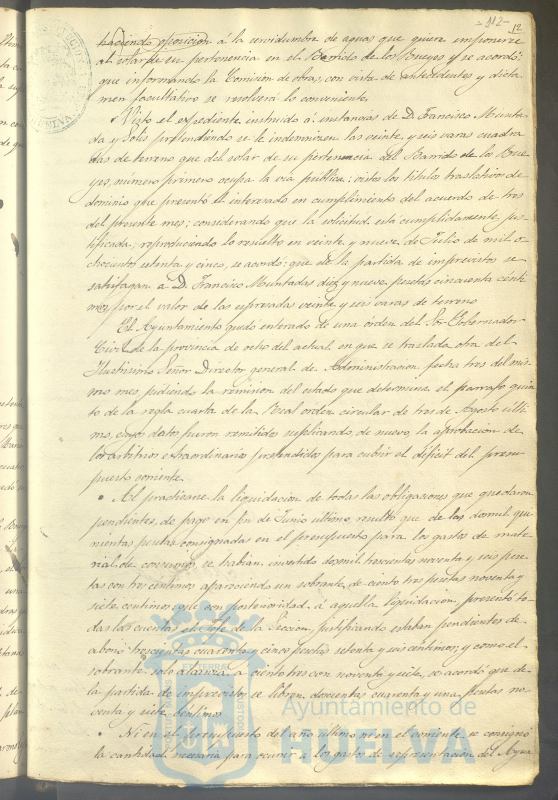 -112- 12
haciendo oposicion á la servidumbre de aguas que quiere imponerse
al solar de su pertenencia en el Barrido de los Bueyes y se acordó:
que informando la Comision de obras, con vista de antecedentes y dicta-
men facultativo se resolverá lo conveniente.
Visto el espediente instruido á instancias de D. Francisco Munta-
da y Solis pretendiendo se le indemnizen las veinte y seis varas cuadra-
das de terreno que del solar de su pertenencia del Barrido de los Bue-
yes, número primero ocupa la via pública; vistos los titulos traslativos de
dominio que presentó el interesado en cumplimiento del acuerdo de tres
del presente mes; considerando que la solicitud está cumplidamente jus-
tificada; reproduciendo lo resuelto en veinte y nueve de Julio de mil o-
chocientos setenta y cinco, se acordó: que de la partida de imprevistos se
satisfagan a D. Francisco Muntadas diez y nueve pesetas cincuenta cénti-
mos por el valor de las espresadas veinte y seis varas de terreno.
El Ayuntamiento quedó enterado de una orden del Sor Gobernador
Civil de la provincia de ocho del actual en que se traslada otra del
Ilustrisimo Señor Director general de Administracion fecha tres del mis-
mo mes pidiendo la remision del estado que determina el parrafo quin-
to de la regla cuarta de la Real orden circular de tres de Agosto ulti-
mo, cuyos datos fueron remitidos suplicando de nuevo la aprobacion de
los arbitrios extraordinarios pretendidos para cubrir el déficit del presu-
puesto corriente.
Al practicarse la liquidacion de todas las obligaciones que quedaron
pendientes de pago en fin de Junio ultimo, resultó que de las dos mil qui-
nientas pesetas consignadas en el presupuesto para los gastos de mate-
rial de se habian invertido dos mil trescientas noventa y seis pese-
tas con tres centimos apareciendo un sobrante de ciento tres pesetas noventa y
siete centimos; que con posterioridad á aquella liquidacion, presentó to-
das las cuentas el Jefe de la Seccion, justificando estaban pendientes de
abono trescientas cuarenta y cinco pesetas setenta y seis centimos, y como el
sobrante solo alcanza a ciento tres con noventa y siete, se acordó que de
la partida de imprevistos se libren doscientas cuarenta y una pesetas no-
venta y siete céntimos.
Ni en el presupuesto del año ultimo ni en el corriente se consignó
la cantidad necesaria para ocurrir a los gastos de representacion del Ayun-
Ayuntamiento de
HUELVA